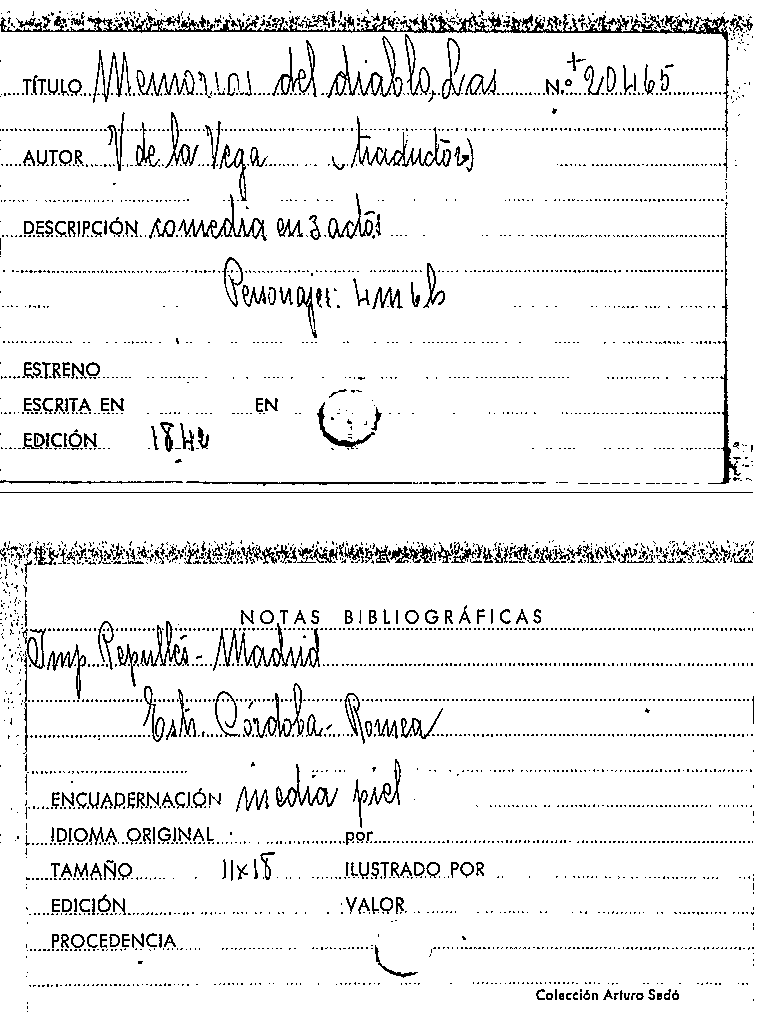 TÍTULO Memorias del diablo, Las N.º +20465
AUTOR V de la Vega (traductor)
DESCRIPCIÓN comedia en 3 actos
Personajes: 4m 6h
ESTRENO
ESCRITA EN EN
EDICIÓN 1842
NOTAS BIBLIOGRÁFICAS
Imp. Repullés - Madrid
Estr. Córdoba - Romea
ENCUADERNACIÓN media piel
IDIOMA ORIGINAL por
TAMAÑO 11x18 ILUSTRADO POR
EDICIÓN VALOR
PROCEDENCIA
Colección Arturo Sedó